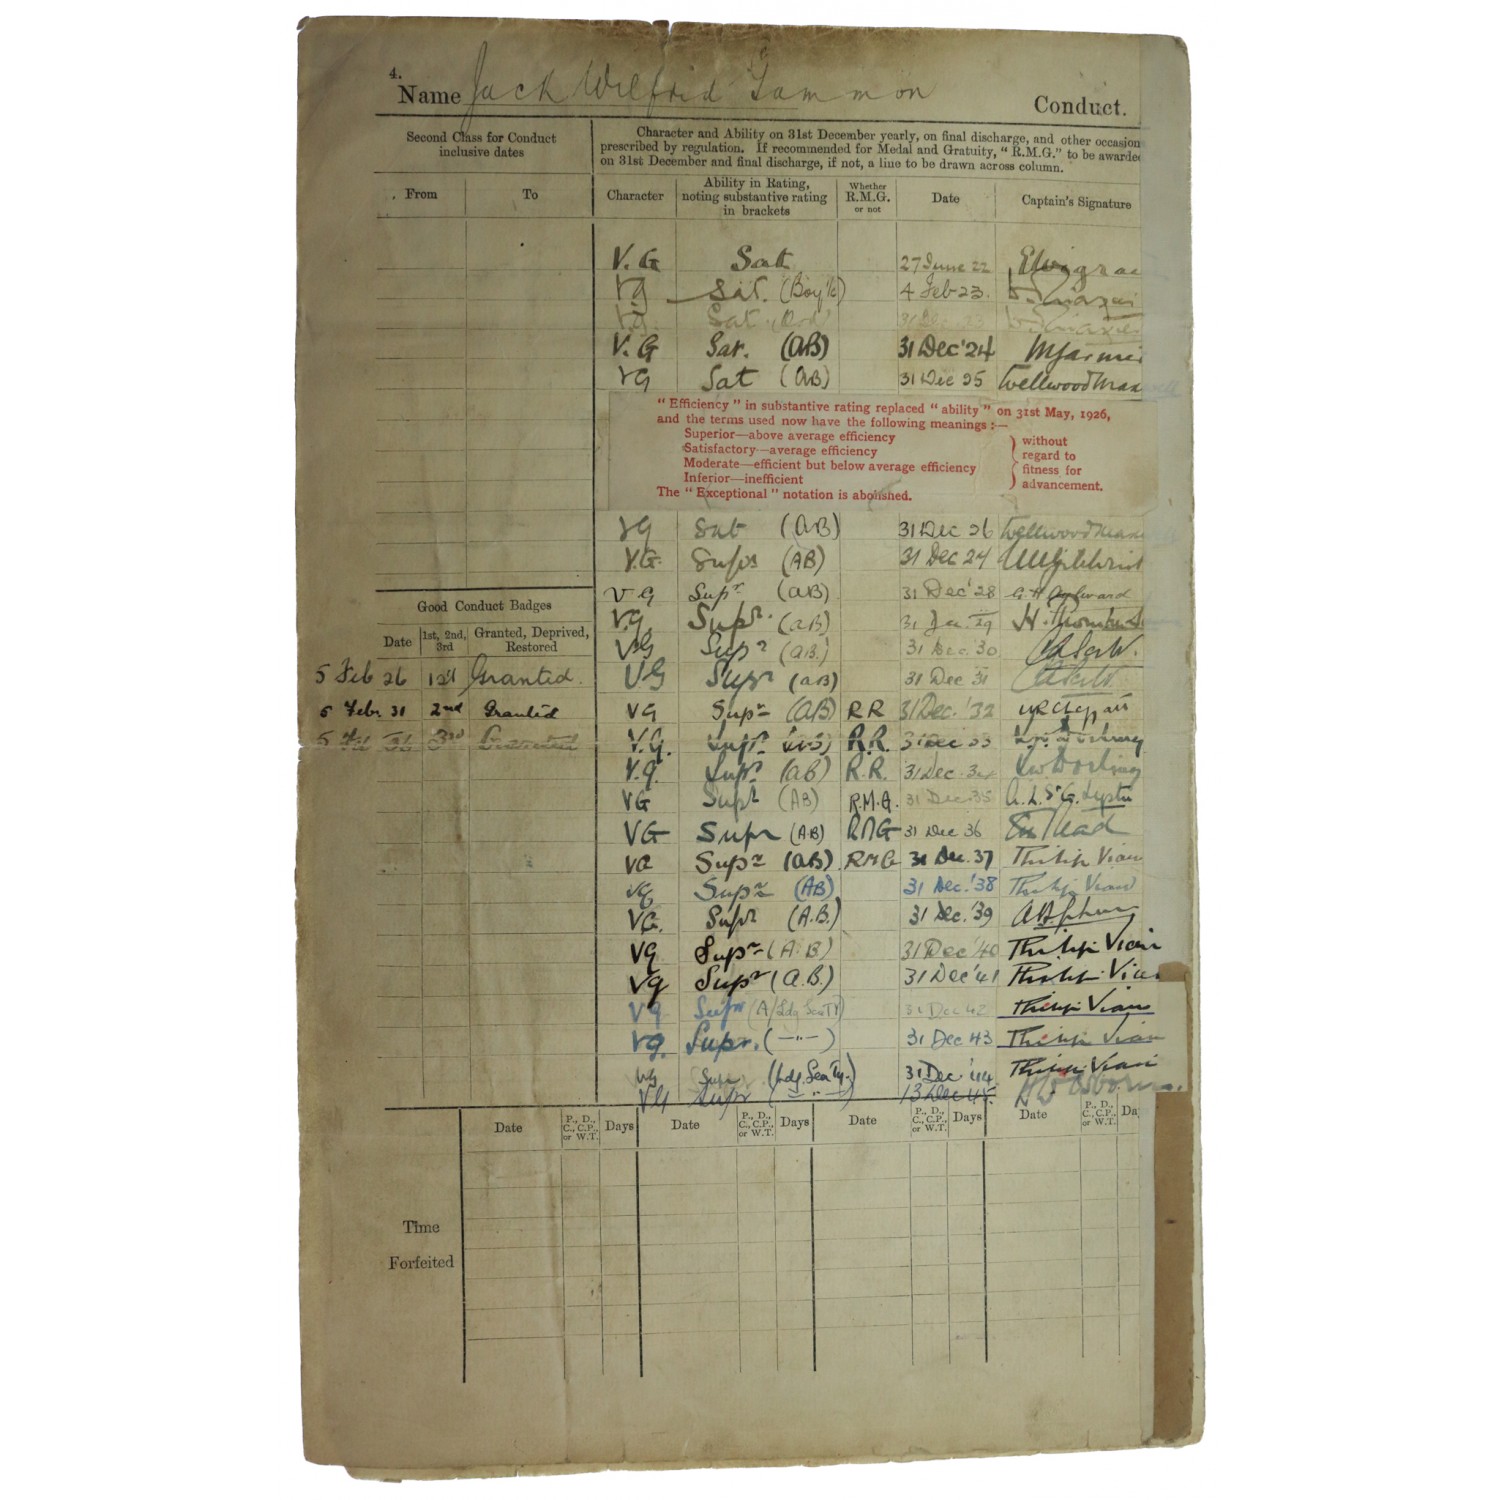 4.
Name Jack Wilfrid Gammon Conduct.
Second Class for Conduct
inclusive dates
Character and Ability on 31st December yearly, on final discharge, and other occasion
prescribed by regulation. If recommended for Medal and Gratuity, "R.M.G." to be awarde
on 31st December and final discharge, if not, a line to be drawn across column.
From To
Character
Ability in Rating,
noting substantive rating
in brackets
Whether
R.M.G.
or not
Date
Captain's Signature
V.G Sat 27 June 22
VG Sat. (Boy) 4 Feb 23.
VG Sat (Ord) 31 Dec 23
V.G Sat. (AB) 31 Dec '24
VG Sat (AB) 31 Dec 25 Wellwood Maxwell
"Efficiency" in substantive rating replaced "ability" on 31st May, 1926,
and the terms used now have the following meanings :—
Superior—above average efficiency
Satisfactory—average efficiency
Moderate—efficient but below average efficiency
Inferior—inefficient
without
regard to
fitness for
advancement.
The "Exceptional" notation is abolished.
VG Sat (AB) 31 Dec 26 Wellwood Max
V.G. Supr (AB) 31 Dec 24
VG Supr (AB) 31 Dec '28
V.G Supr. (AB) 31 Dec. 29
VG Supr (AB.) 31 Dec. 30
VG Supr (AB) 31 Dec 31
VG Supr (AB) RR 31 Dec. '32
V.G. Supr. (AB) R.R. 31 Dec 33
V.G. Supr. (AB) R.R. 31 Dec. 34
VG Supr (AB) R.M.G. 31 Dec. 35 A. L. St G. Lyster
VG Supr (AB) RMG 31 Dec 36
VG Supr (AB) RMG 31 Dec. 37 Philip Vian
VG Supr (AB) 31 Dec. '38 Philip Vian
VG. Supr (A.B.) 31 Dec. '39
VG Supr (A.B) 31 Dec '40 Philip Vian
VG Supr (A.B.) 31 Dec '41 Philip Vian
VG Supr (A/Ldg Sea Ty) 31 Dec 42 Philip Vian
VG. Supr. (—"—) 31 Dec 43 Philip Vian
VG Supr (Ldg. Sea Ty.) 31 Dec. '44 Philip Vian
VG Supr ( " ) 13 Dec 45. Osborne.
Good Conduct Badges
Date
1st, 2nd,
3rd
Granted, Deprived,
Restored
5 Feb 26 1st Granted.
5 Feb. 31 2nd Granted
5 Feb 36 3rd Granted
Date P., D., C., C.P., or W.T. Days Date P., D., C., C.P., or W.T. Days Date P., D., C., C.P., or W.T. Days Date P., D., C., C.P., or W.T. Da
Time
Forfeited